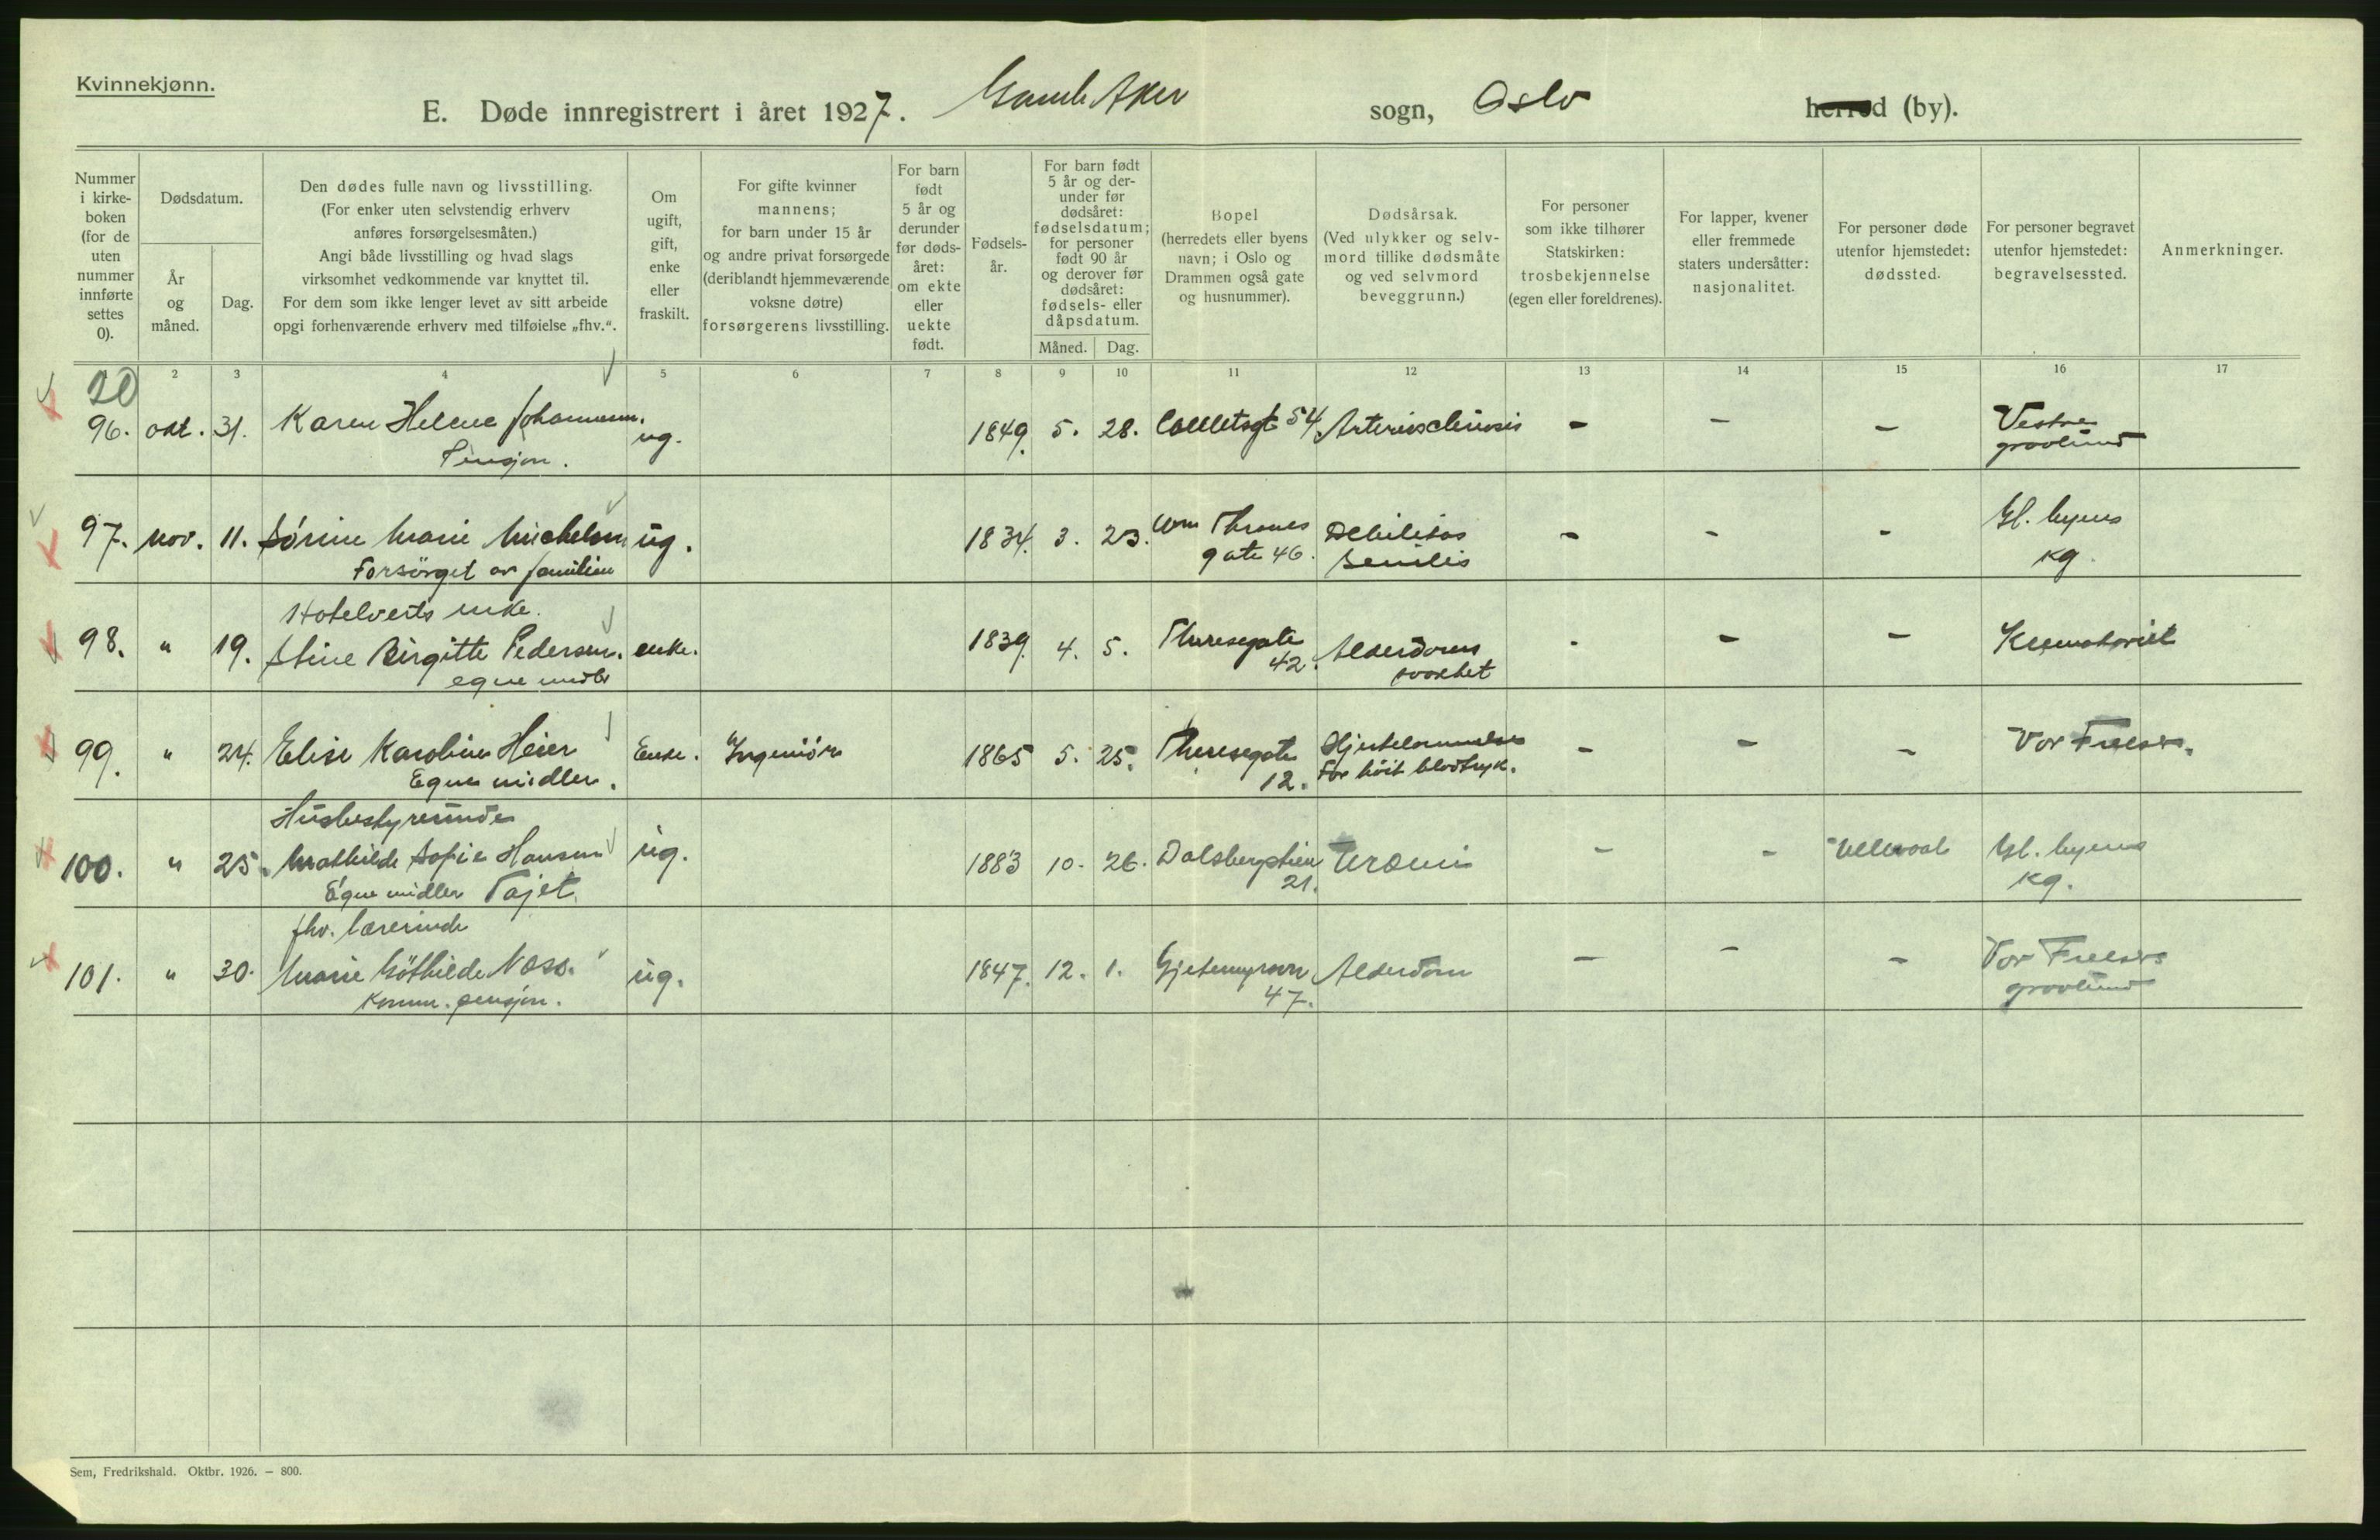 Kvinnekjønn.
E. Døde innregistrert i året 1927. Gamle Aker sogn, Oslo herred (by).
Nummer i kirke-boken (for de uten nummer innførte settes 0).
Dødsdatum.
År og måned.
Dag.
Den dødes fulle navn og livsstilling.
(For enker uten selvstendig erhverv
anføres forsørgelsesmåten.)
Angi både livsstilling og hvad slags
virksomhet vedkommende var knyttet til.
For dem som ikke lenger levet av sitt arbeide
opgi forhenværende erhverv med tilføielse „fhv.“.
Om ugift, gift, enke eller fraskilt.
For gifte kvinner
mannens;
for barn under 15 år
og andre privat forsørgede
(deriblandt hjemmeværende
voksne døtre)
forsørgerens livsstilling.
For barn født 5 år og derunder før døds-året: om ekte eller uekte født.
Fødsels-år.
For barn født
5 år og der-
under før
dødsåret:
fødselsdatum;
for personer
født 90 år
og derover før
dødsåret:
fødsels- eller
dåpsdatum.
Måned. Dag.
Bopel
(herredets eller byens
navn; i Oslo og
Drammen også gate
og husnummer).
Dødsårsak.
(Ved ulykker og selv-
mord tillike dødsmåte
og ved selvmord
beveggrunn.)
For personer
som ikke tilhører
Statskirken:
trosbekjennelse
(egen eller foreldrenes).
For lapper, kvener
eller fremmede
staters undersåtter:
nasjonalitet.
For personer døde
utenfor hjemstedet:
dødssted.
For personer begravet
utenfor hjemstedet:
begravelsessted.
Anmerkninger.
2 3 4 5 6 7 8 9 10 11 12 13 14 15 16 17
20
96. okt. 31. Karen Helene Johannesen. ug. 1849. 5. 28. Colletsgt 54 Arteriosclerosis - - - Vestre
Pensjon. gravlund
97. nov. 11. Sørine Marie Michelsen ug. 1834. 3. 23. Wm Thranes Debilitas - - - Gl. byens
Forsörget av familien gate 46. senilis kg.
Hotelverts enke.
98. " 19. Stine Birgitte Pedersen. enke. 1839. 4. 5. Theresegate Alderdoms - - - Krematoriet
egne midler 42. svakhet
99. " 24. Elise Karoline Heier Enke. Ingeniör 1865 5. 25. Theresegate Hjertelammelse - - - Vor Frelsers.
Egne midler. 12. For höit blodtryk.
Husbestyrerinde
100. " 25. Mathilde Sofie Hansen ug. 1883 10. 26. Dalsbergstien Uræmi - - Ullevaal Gl. byens
Egne midler Tajet. 21. kg.
fhv. lærerinde
101. " 30. Marie Göthilde Næss. ug. 1847. 12. 1. Gjetemyrsvn Alderdom - - - Vor Frelsers
Komm. pensjon. 47. gravlund
Sem, Fredrikshald. Oktbr. 1926. – 800.